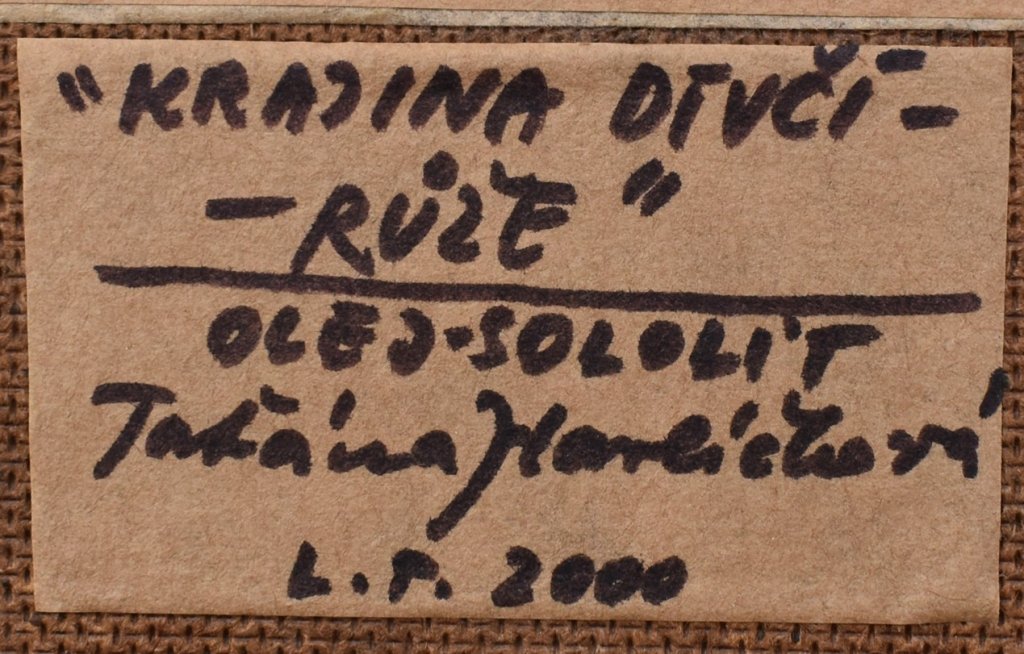 "KRAJINA DÍVČÍ -
- RŮŽE"
OLEJ-SOLOLIT
Taťána Havlíčková
L.P. 2000